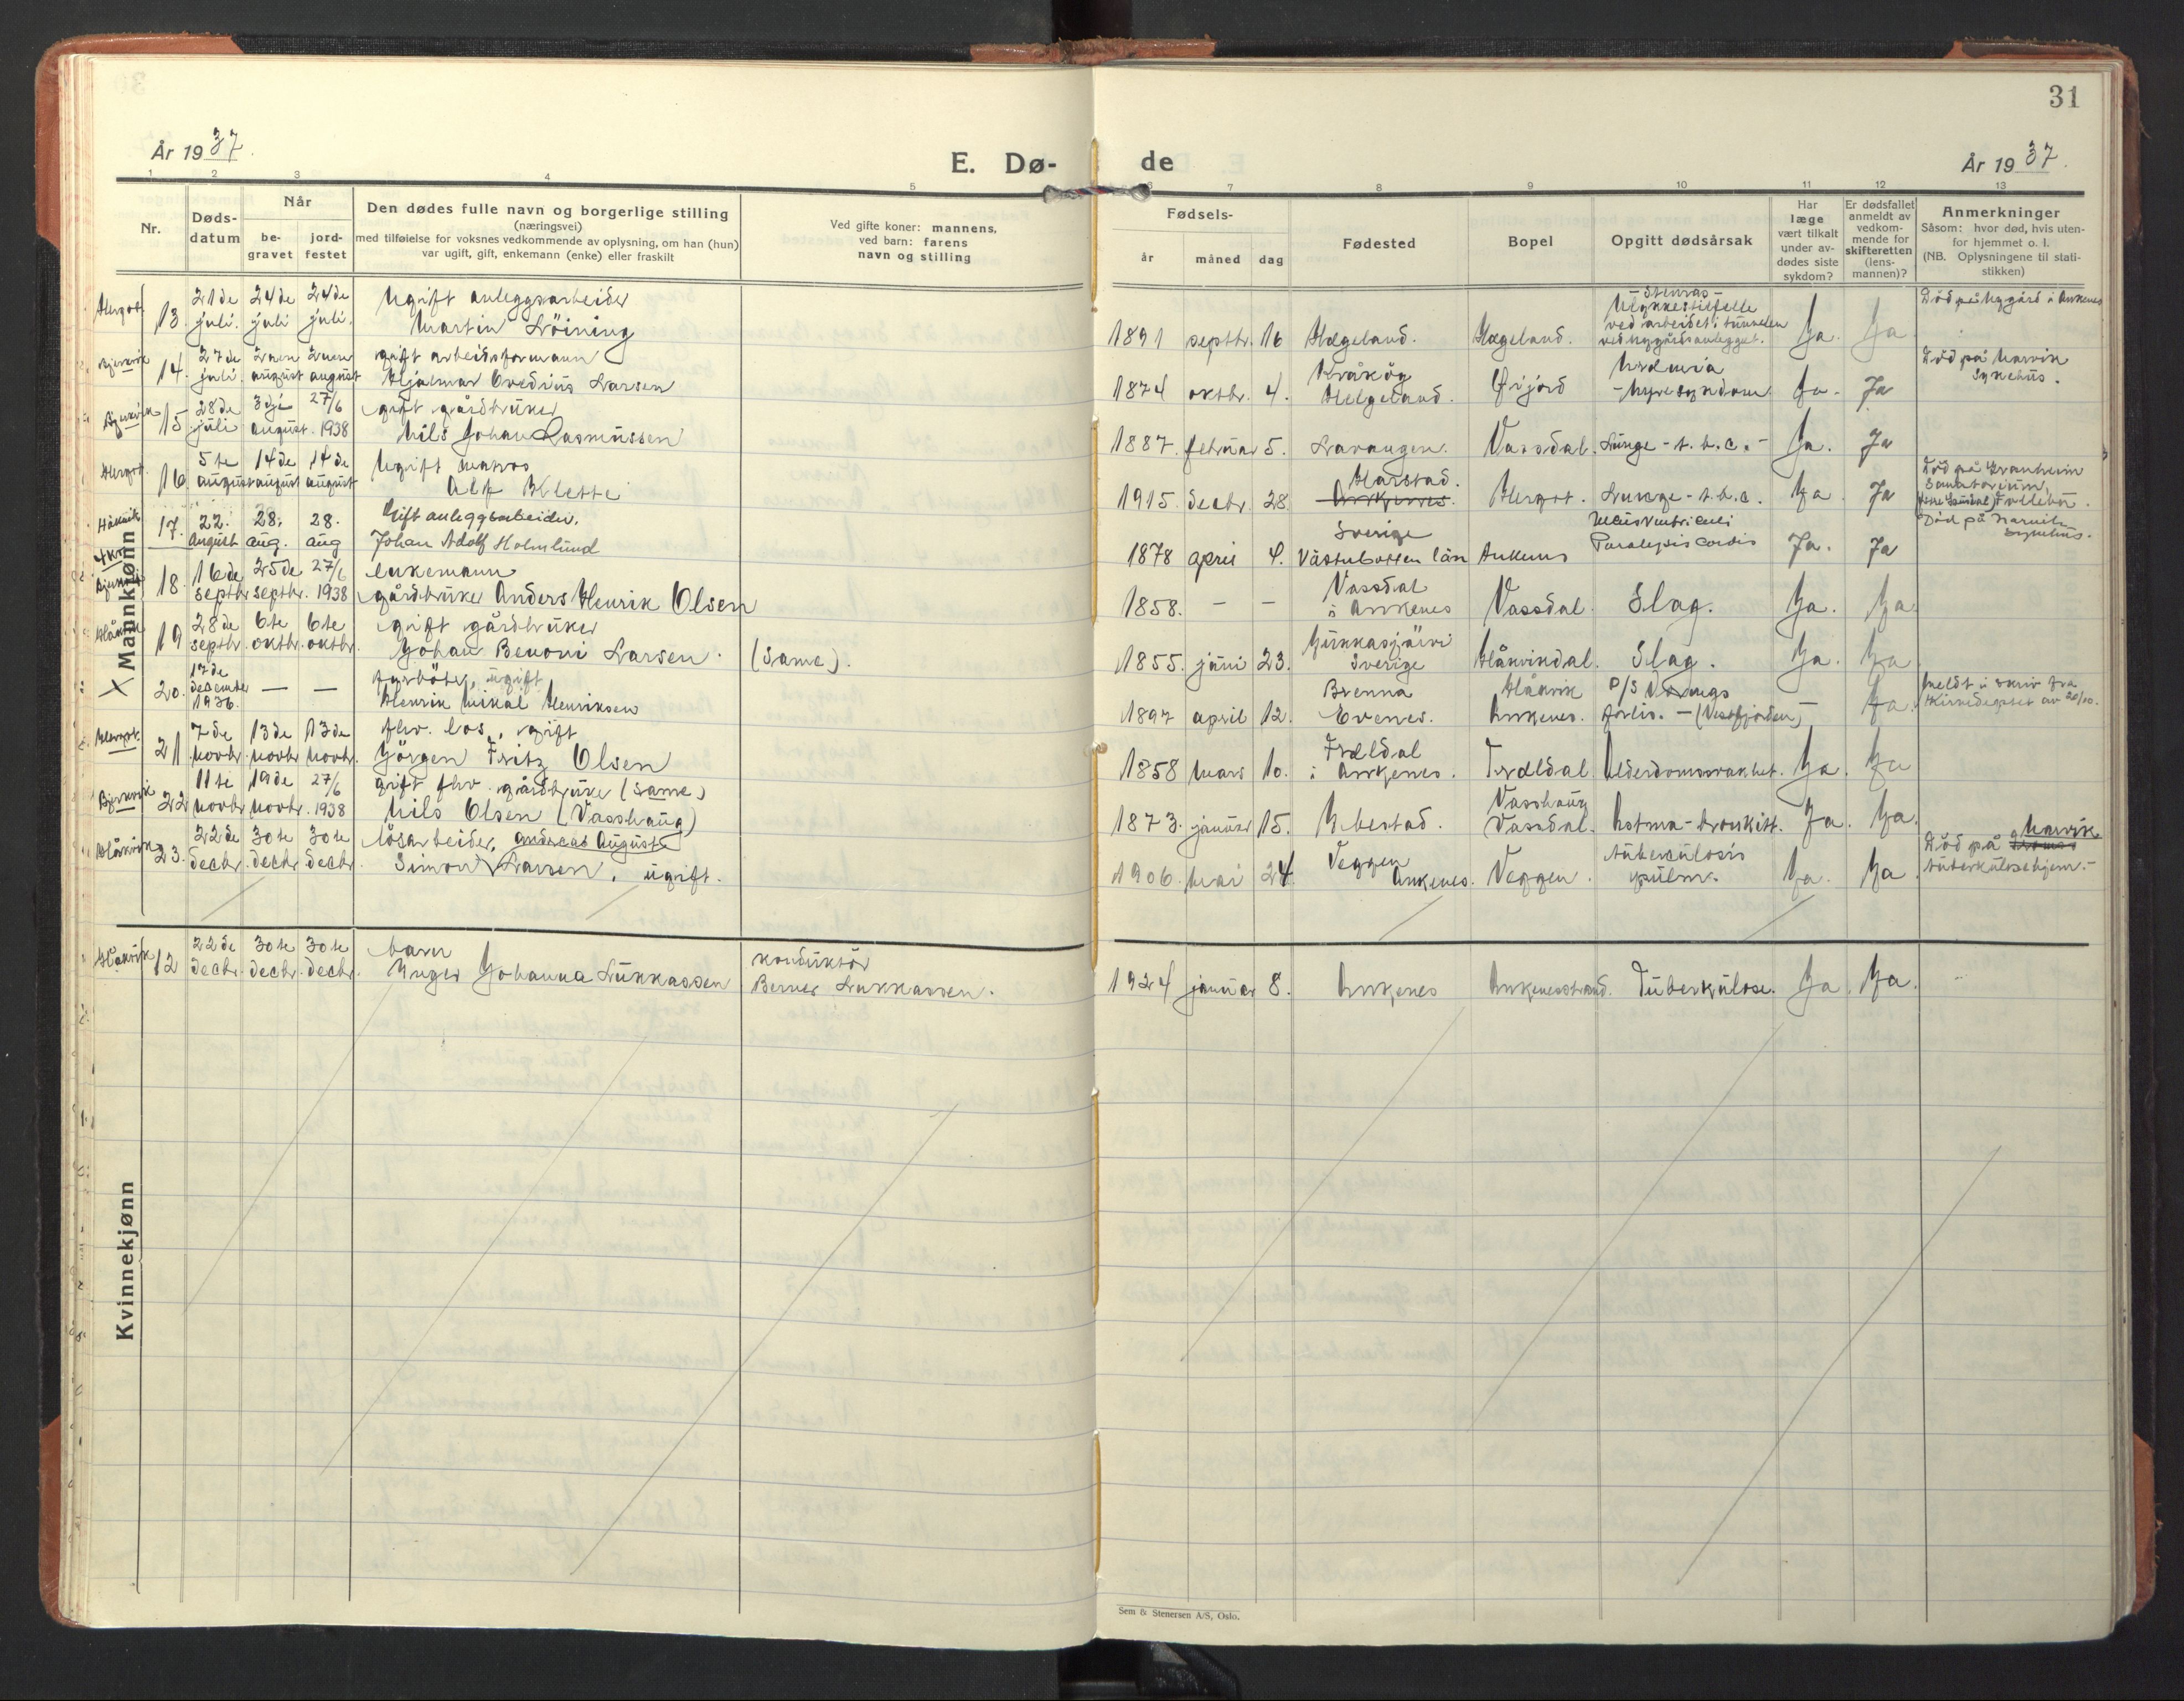 31
År 1937.
E. Dø-
de
År 1937.
1 2 3 4 5 6 7 8 9 10 11 12 13
Nr.
Døds-
datum
Når
be-
gravet
jord-
festet
Den dødes fulle navn og borgerlige stilling
(næringsvei)
med tilføielse for voksnes vedkommende av oplysning, om han (hun)
var ugift, gift, enkemann (enke) eller fraskilt
Ved gifte koner: mannens,
ved barn: farens
navn og stilling
Fødsels-
år måned dag
Fødested
Bopel
Opgitt dødsårsak
Har
læge
vært tilkalt
under av-
dødes siste
sykdom?
Er dødsfallet
anmeldt av
vedkom-
mende for
skifteretten
(lens-
mannen)?
Anmerkninger
Såsom: hvor død, hvis uten-
for hjemmet o. l.
(NB. Oplysningene til stati-
stikken)
Mannkjønn
Hergot 13. 21de juli. 24de juli 24de juli. Ugift anleggsarbeider
Martin Löining
1891 septbr. 16 Hægeland. Hægeland. - Stenras -
Ulykkestilfelle
ved arbeidet i tunnelen
ved Nygårdsanlegget. Ja. Ja. Död på Nygård i Ankenes
Bjerkvik 14. 27de juli. 2nen august 2nen august gift arbeidsformann
Hjalmar Ovedius Larsen
1874 oktbr. 4. Kråkög
Helgeland. Öijord Uræmia
- Nyresykdom Ja. Ja Död på Narvik
Sykehus.
Bjerkvik 15 28de juli 3dje august. 27/6 1938 gift gårdbruker
Nils Johan Rasmussen
1887. februar 5. Lavangen. Vassdal. Lunge - t.b.c. - Ja. Ja
Hergot. 16. 5te august 14de august 14de august Ugift matros
Alf Klette
1915 decbr. 28. Harstad.
Ankenes. Hergot. Lunge - t.b.c. Ja Ja Död på Granheim
Sanatorium,
Follebu.
Håkvik 17. 22. August 28. aug. 28. aug Gift anleggsarbeider.
Johan Adolf Holmlund
1878 april 4. Sverige
Västerbotten län Ankenes Ulcus Ventriculi
Paralysis Cordis Ja. Ja Död på Narvik
Sykehus.
18. 16de septbr 25de septbr. 27/6 1938 enkemann
gårdbruker Anders Henrik Olsen
1858. - - Vassdal
i Ankenes Vassdal. Slag. Ja. Ja.
Håkvik 19 28de septbr. 6te oktbr. 6te oktbr. gift gårdbruker
Johan Benoni Larsen. (Same).
1855. juni 23. Jukkasjärvi
Sverige Håkvikdal. Slag. Ja. Ja
X 20. 17de desember 1936. - - fyrböter, ugift
Henrik Mikal Henriksen
1897 april 12. Brenna
Evenes. Håkvik
Ankenes. D/S Varangs
forlis. - (Vestfjorden) Ja. Meldt i skriv fra
Kirkedeptet av 20/10.
Hergot. 21 7de novbr. 13de novbr. 13de novbr. fhv. los, gift
Jörgen Fritz Olsen
1858 mars 10. Trældal
i Ankenes. Trældal Alderdomssvakhet. Ja. Ja
Bjerkvik 22 11te novbr. 19de novbr. 27/6 1938 gift fhv. gårdbruker (same)
Nils Olsen (Vasshaug)
1873. januar 15. Ibestad. Vasshaug
Vassdal. Astma - bronkitt. Ja. Ja.
Håkvik 23. 22de decbr. 30te decbr. 30te decbr lösarbeider, Andreas August
Simon Larsen, ugift.
1906. mai 24. Veggen
Ankenes. Veggen. Tuberkulosis
pulm. Ja. Ja. Narvik
Död på
tuberkulosehjem.
Kvinnekjønn
Håkvik 12 22de decbr. 30te decbr. 30te decbr. barn
Inger Johanna Lukkassen konduktör
Berner Lukkassen.
1924 januar 8. Ankenes Ankenesstrand. Tuberkulose. Ja. Ja.
Sem & Stenersen A/S, Oslo.